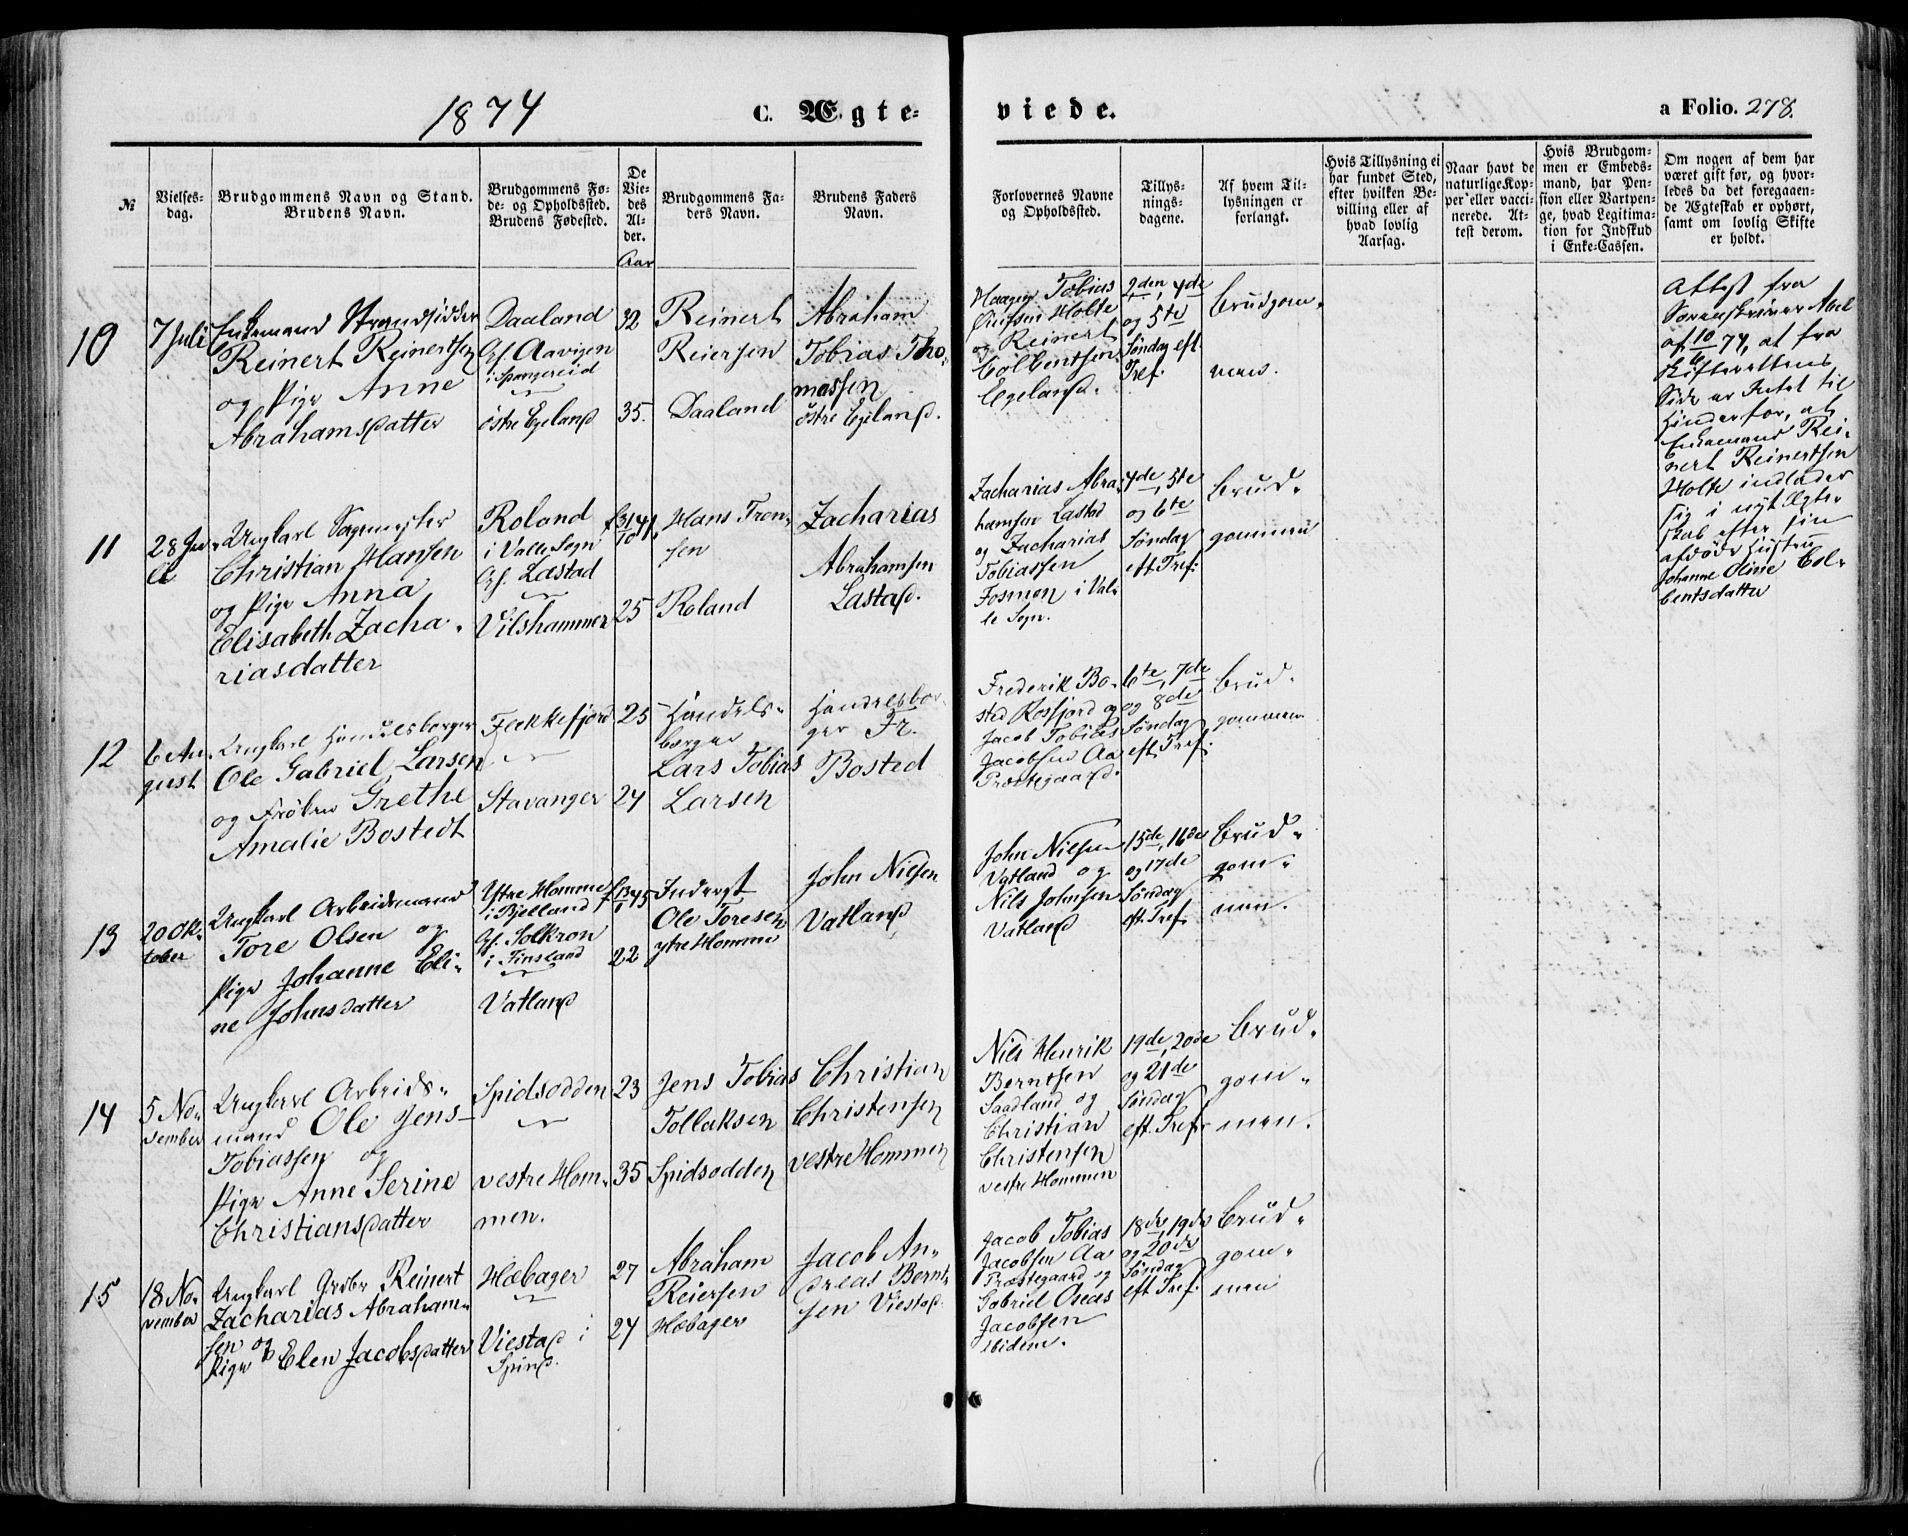 1874
C. Ægte-
viede.
a Folio. 278.
№
Vielses-
dag.
Brudgommens Navn og Stand.
Brudens Navn.
Brudgommens Fø-
de- og Opholdssted.
Brudens Fødested.
De
Vie-
des
Al-
der.
Aar
Brudgommens Fa-
ders Navn.
Brudens Faders
Navn.
Forlovernes Navne
og Opholdssted.
Tillys-
nings-
dagene.
Af hvem Til-
lysningen er
forlangt.
Hvis Tillysning ei
har fundet Sted,
efter hvilken Be-
villing eller af
hvad lovlig
Aarsag.
Naar havt de
naturlige Kop-
per eller vacci-
nerede. At-
test derom.
Hvis Brudgom-
men er Embeds-
mand, har Pen-
sion eller Vartpen-
ge, hvad Legitima-
tion for Indskud
i Enke-Cassen.
Om nogen af dem har
været gift før, og hvor-
ledes da det foregaaen-
de Ægteskab er ophørt,
samt om lovlig Skifte
er holdt.
10
7 Juli
Enkemand Strandsidder
Reinert Reinertsen
og Pige Anne
Abrahamsdatter
Daaland
Of. Aavigen
i Spangereid
østre Egeland
32
35.
Reinert
Reiersen
Daaland
Abraham
Tobias Tho-
massen
østre Egeland.
Haagen Tobias
Holte
og Reinert
Colbentsen
Egeland.
2den, 4de
og 5te
Søndag eft
Tref.
Brudgom-
men.
Attest fra
Sorenskriver Abel
af 10/6 74, at fra
Skifterettens
Side er Intet til
Hinder for, at
Enkemand Rei-
nert Reinertsen
Holte indlader
sig i nyt Ægte-
skab efter sin
afdøde Hustru
Johanne Oline Col-
bentsdatter
11
28 Ju-
li
Ungkarl Sagmester
Christian Hansen
og Pige Anna
Elisabeth Zacha-
riasdatter
Roland
i Valle Sogn
Of. Lastad
Vilshammer
f 31/10 41
25
Hans Tron-
sen
Roland
Zacharias
Abrahamsen
Lastad.
Zacharias Abra-
hamsen Lastad
og Zacharias
Tobiassen
Fosmon i Val-
le Sogn.
4de, 5te
og 6te
Søndag
eft. Tref.
Brud-
gommen
12
6 Au-
gust
Ungkarl Handelsborger
Ole Gabriel Larsen
og Frøken Grethe
Amalie Bostedt
Flekkefjord
Stavanger
25
24
Handels-
borger
Lars Tobias
Larsen
Handelsbor-
ger Fr.
Bosted
Frederik Bo-
sted Rosfjord og
Jacob Tobias
Jacobsen Aa
Præstegaard.
6te, 7de
og 8de
Søndag
eft. Tref.
Brud-
gommen
13
20 Ok-
tober
Ungkarl Arbeidsmand
Tore Olsen og
Pige Johanne Eli-
ne Johnsdatter
Ytre Homme
i Bjelland
Of. Solkron
i Finsland
Vatland
f 13/1 45
22
Inderst
Ole Toresen
ytre Homme
John Nielsen
Vatland
John Nielsen
Vatland og
Nils Johnsen
Vatland
15de, 16de
og 17de
Søndag
eft. Tref.
Brud-
gom-
men.
14
5 No-
vember
Ungkarl Arbeids-
mand Ole Jens
Tobiassen og
Pige Anne Serine
Christiansdatter
Spidsodden
vestre Hom-
men.
23
35
Jens Tobias
Tollaksen
Spidsodden
Christian
Christensen
vestre Hommen
Nils Henrik
Berntsen
Saadland og
Christian
Christensen
vestre Hommen
19de, 20de
og 21de
Søndag
eft. Tref.
Brud-
gom-
men.
15
18 No-
vember
Ungkarl Gbr. Reinert
Zacharias Abraham-
sen og
Pige Elen Jacobsdatter
Hæbager
Viestad i
Spind.
27
24
Abraham
Reiersen
Hæbager
Jacob An-
dreas Bernt-
sen Viestad.
Jacob Tobias
Jacobsen Aa
Præstegaard og
Gabriel Oseas
Jacobsen
ibidem.
18de, 19de
og 20de
Søndag
eft. Tref.
Brud-
gom-
men